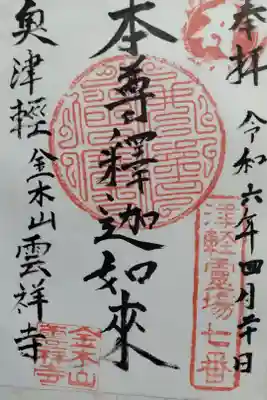 奉拝
令和六年四月二十日
津軽靈場七番
本尊釋迦如來
奥津輕金木山雲祥寺
金木山
雲祥寺